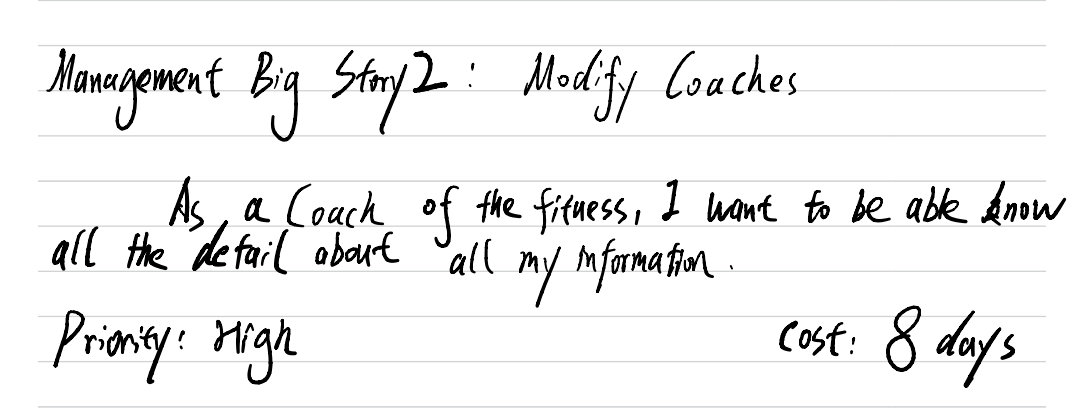 Management Big Story 2: Modify Coaches
As a Coach of the fitness, I want to be able know
all the detail about all my information.
Priority: High Cost: 8 days